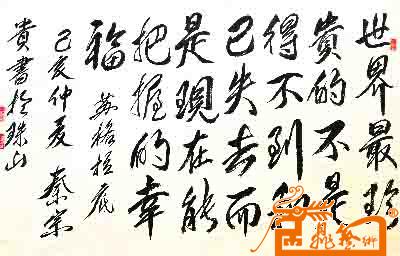 世界最珍
貴的不是
得不到和
已失去而
是現在能
把握的幸
福
苏格拉底
己亥仲夏 秦宗
貴書於珠山